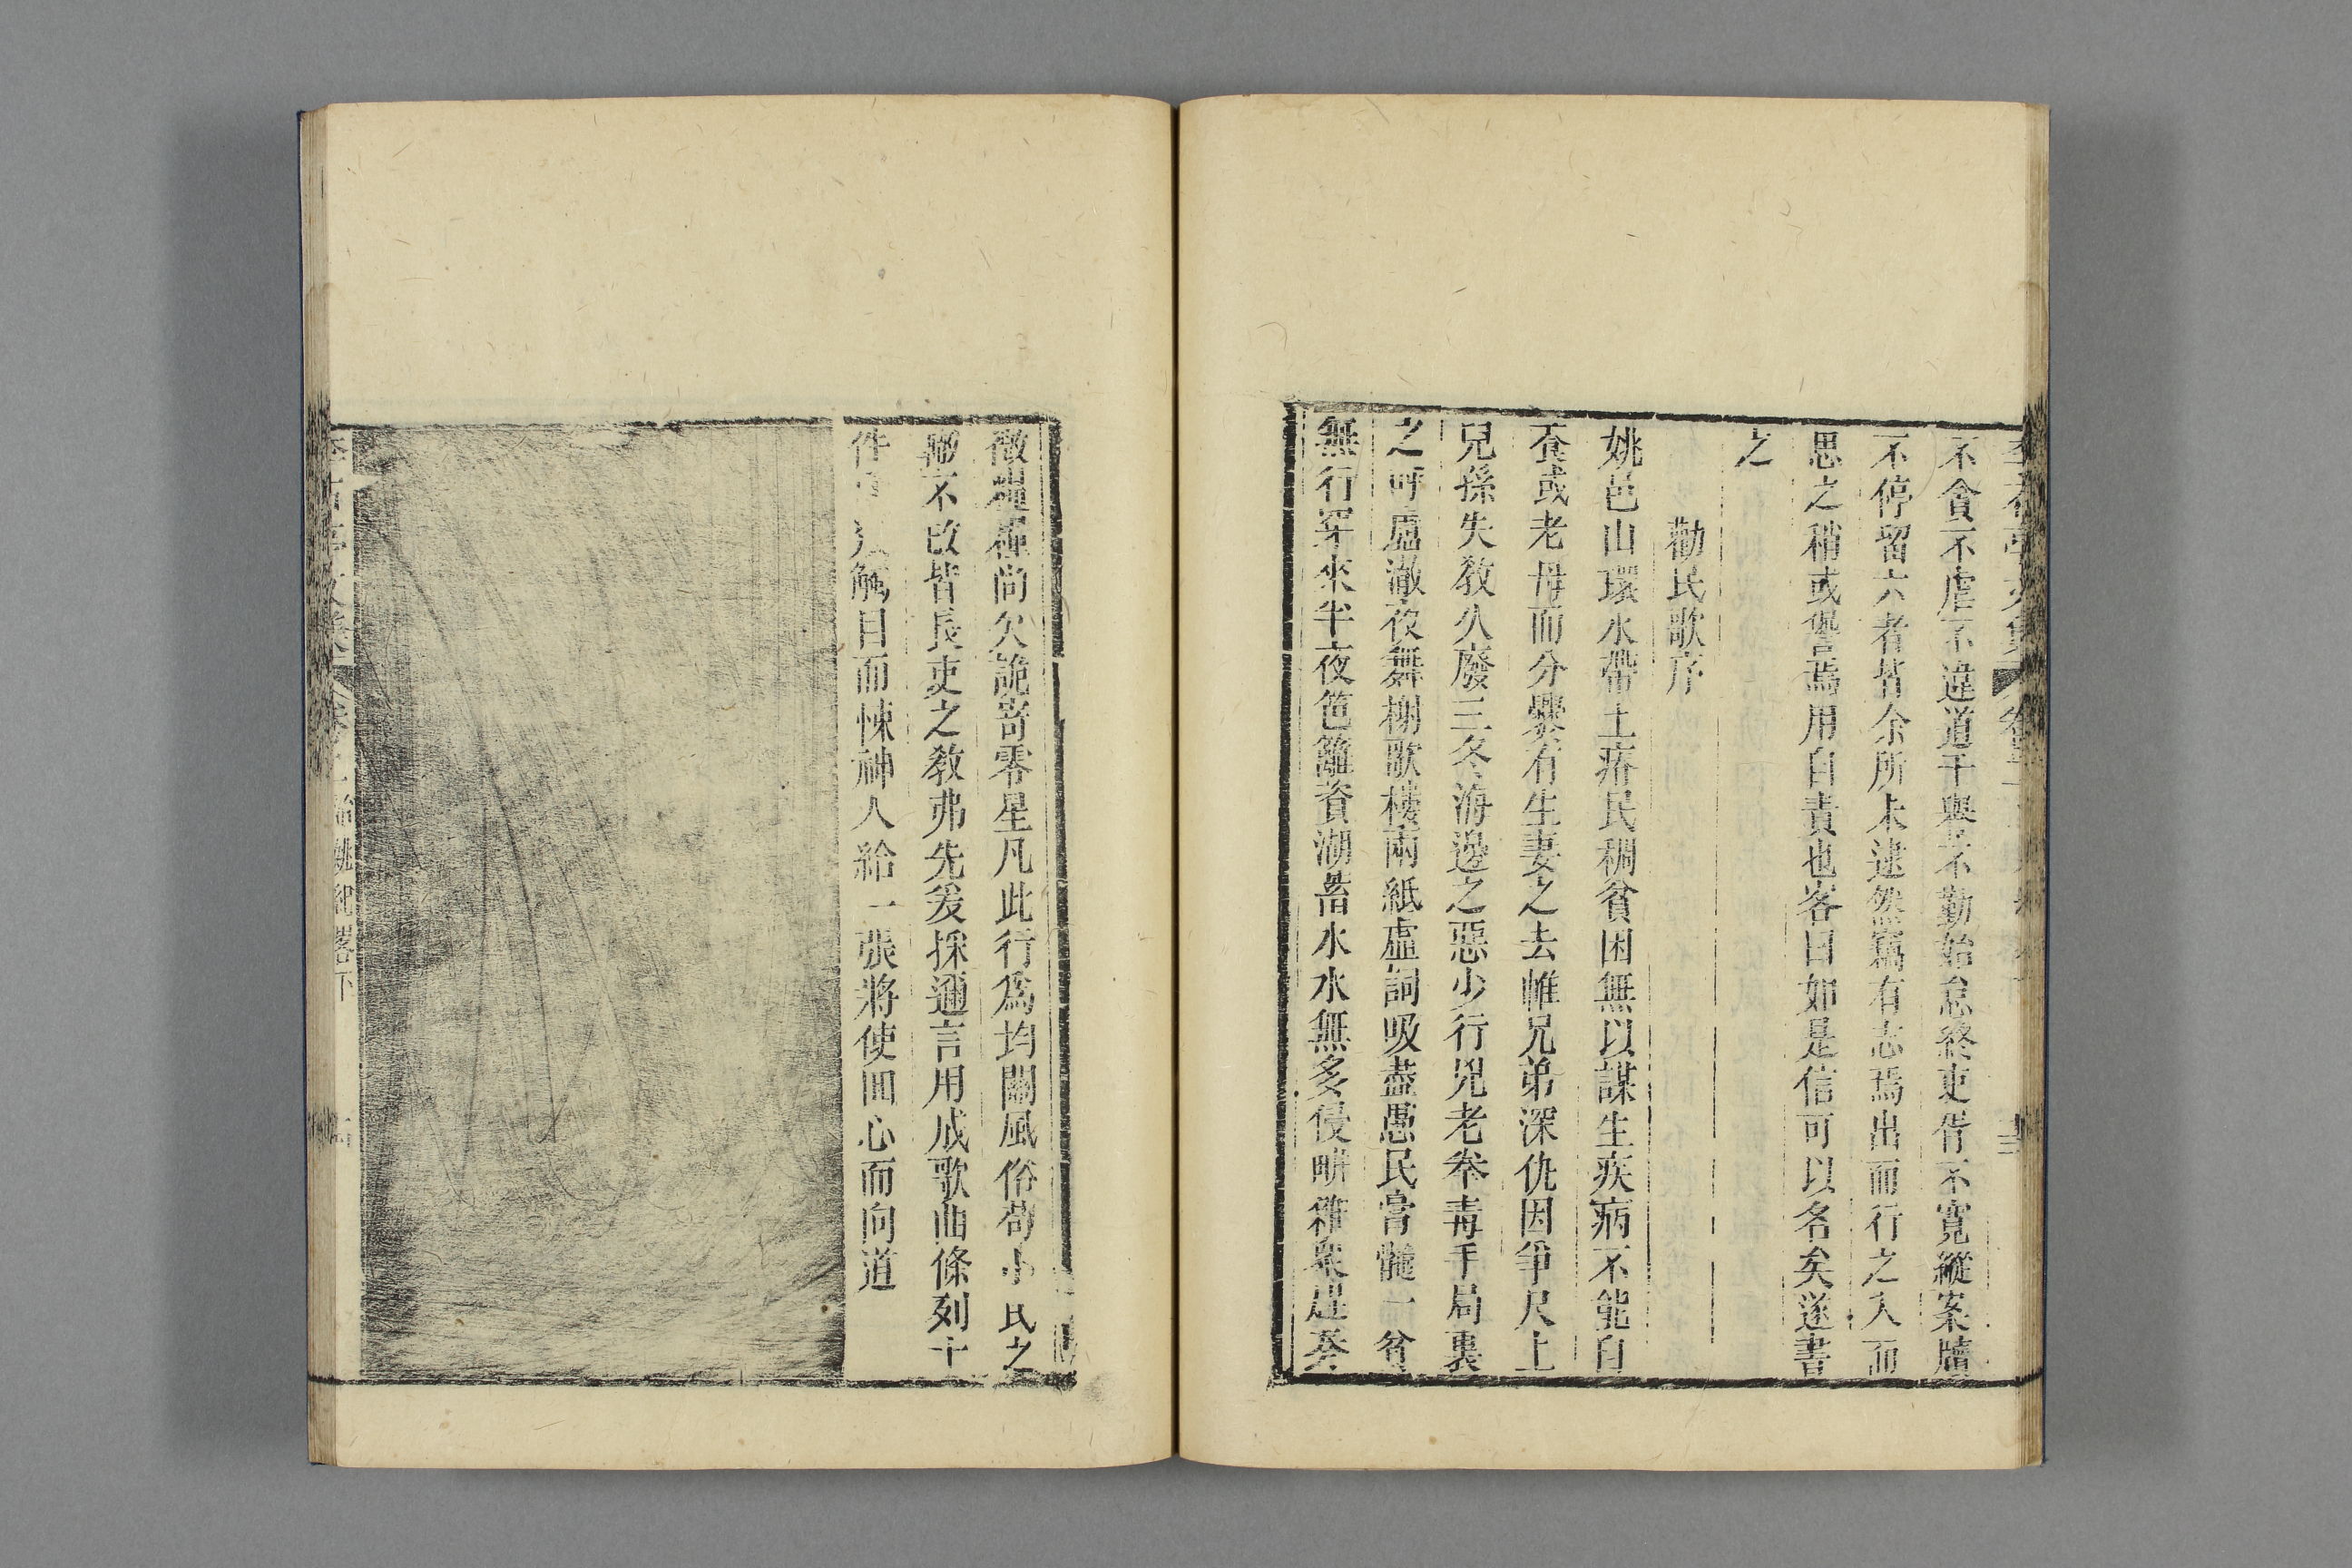 不貪不虐不違道干譽不勤始怠終吏胥不寬縱案牘
不停留六者皆余所未逮然竊有志焉出而行之入而
思之稍或譽焉用自責也客曰如是信可以名矣遂書
之
勸民歌序
姚邑山環水帶土瘠民稠貧困無以謀生疾病不能自
養或老母而分爨有生妻之去帷兄弟深仇因爭尺土
兒孫失教久廢三冬海邊之惡少行兇老拳毒手局裏
之呼盧澈夜舞榭歌樓兩紙虛詞吸盡愚民膏髓一
無行穽來半夜笆籬資湖蓄水水無多侵畊雜衆
徵糧糧尚欠詭寄零星凡此行爲均關風俗苟小民之
不改皆長吏之教弗先爰採邇言用成歌曲條列十
件觸目而悚神人給一張將使回心而向道
治姚紀畧下